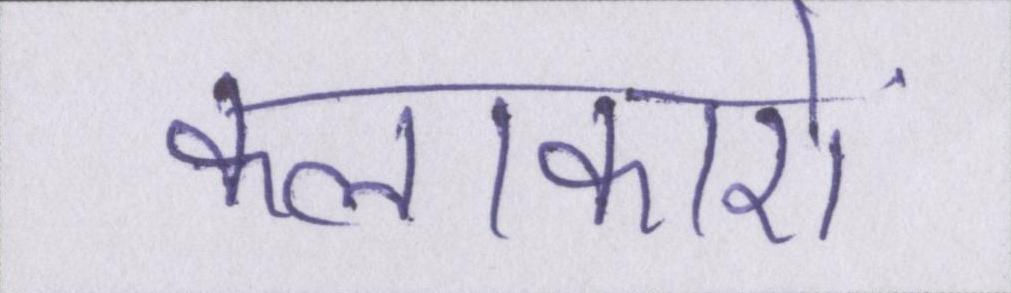 कलाकारों